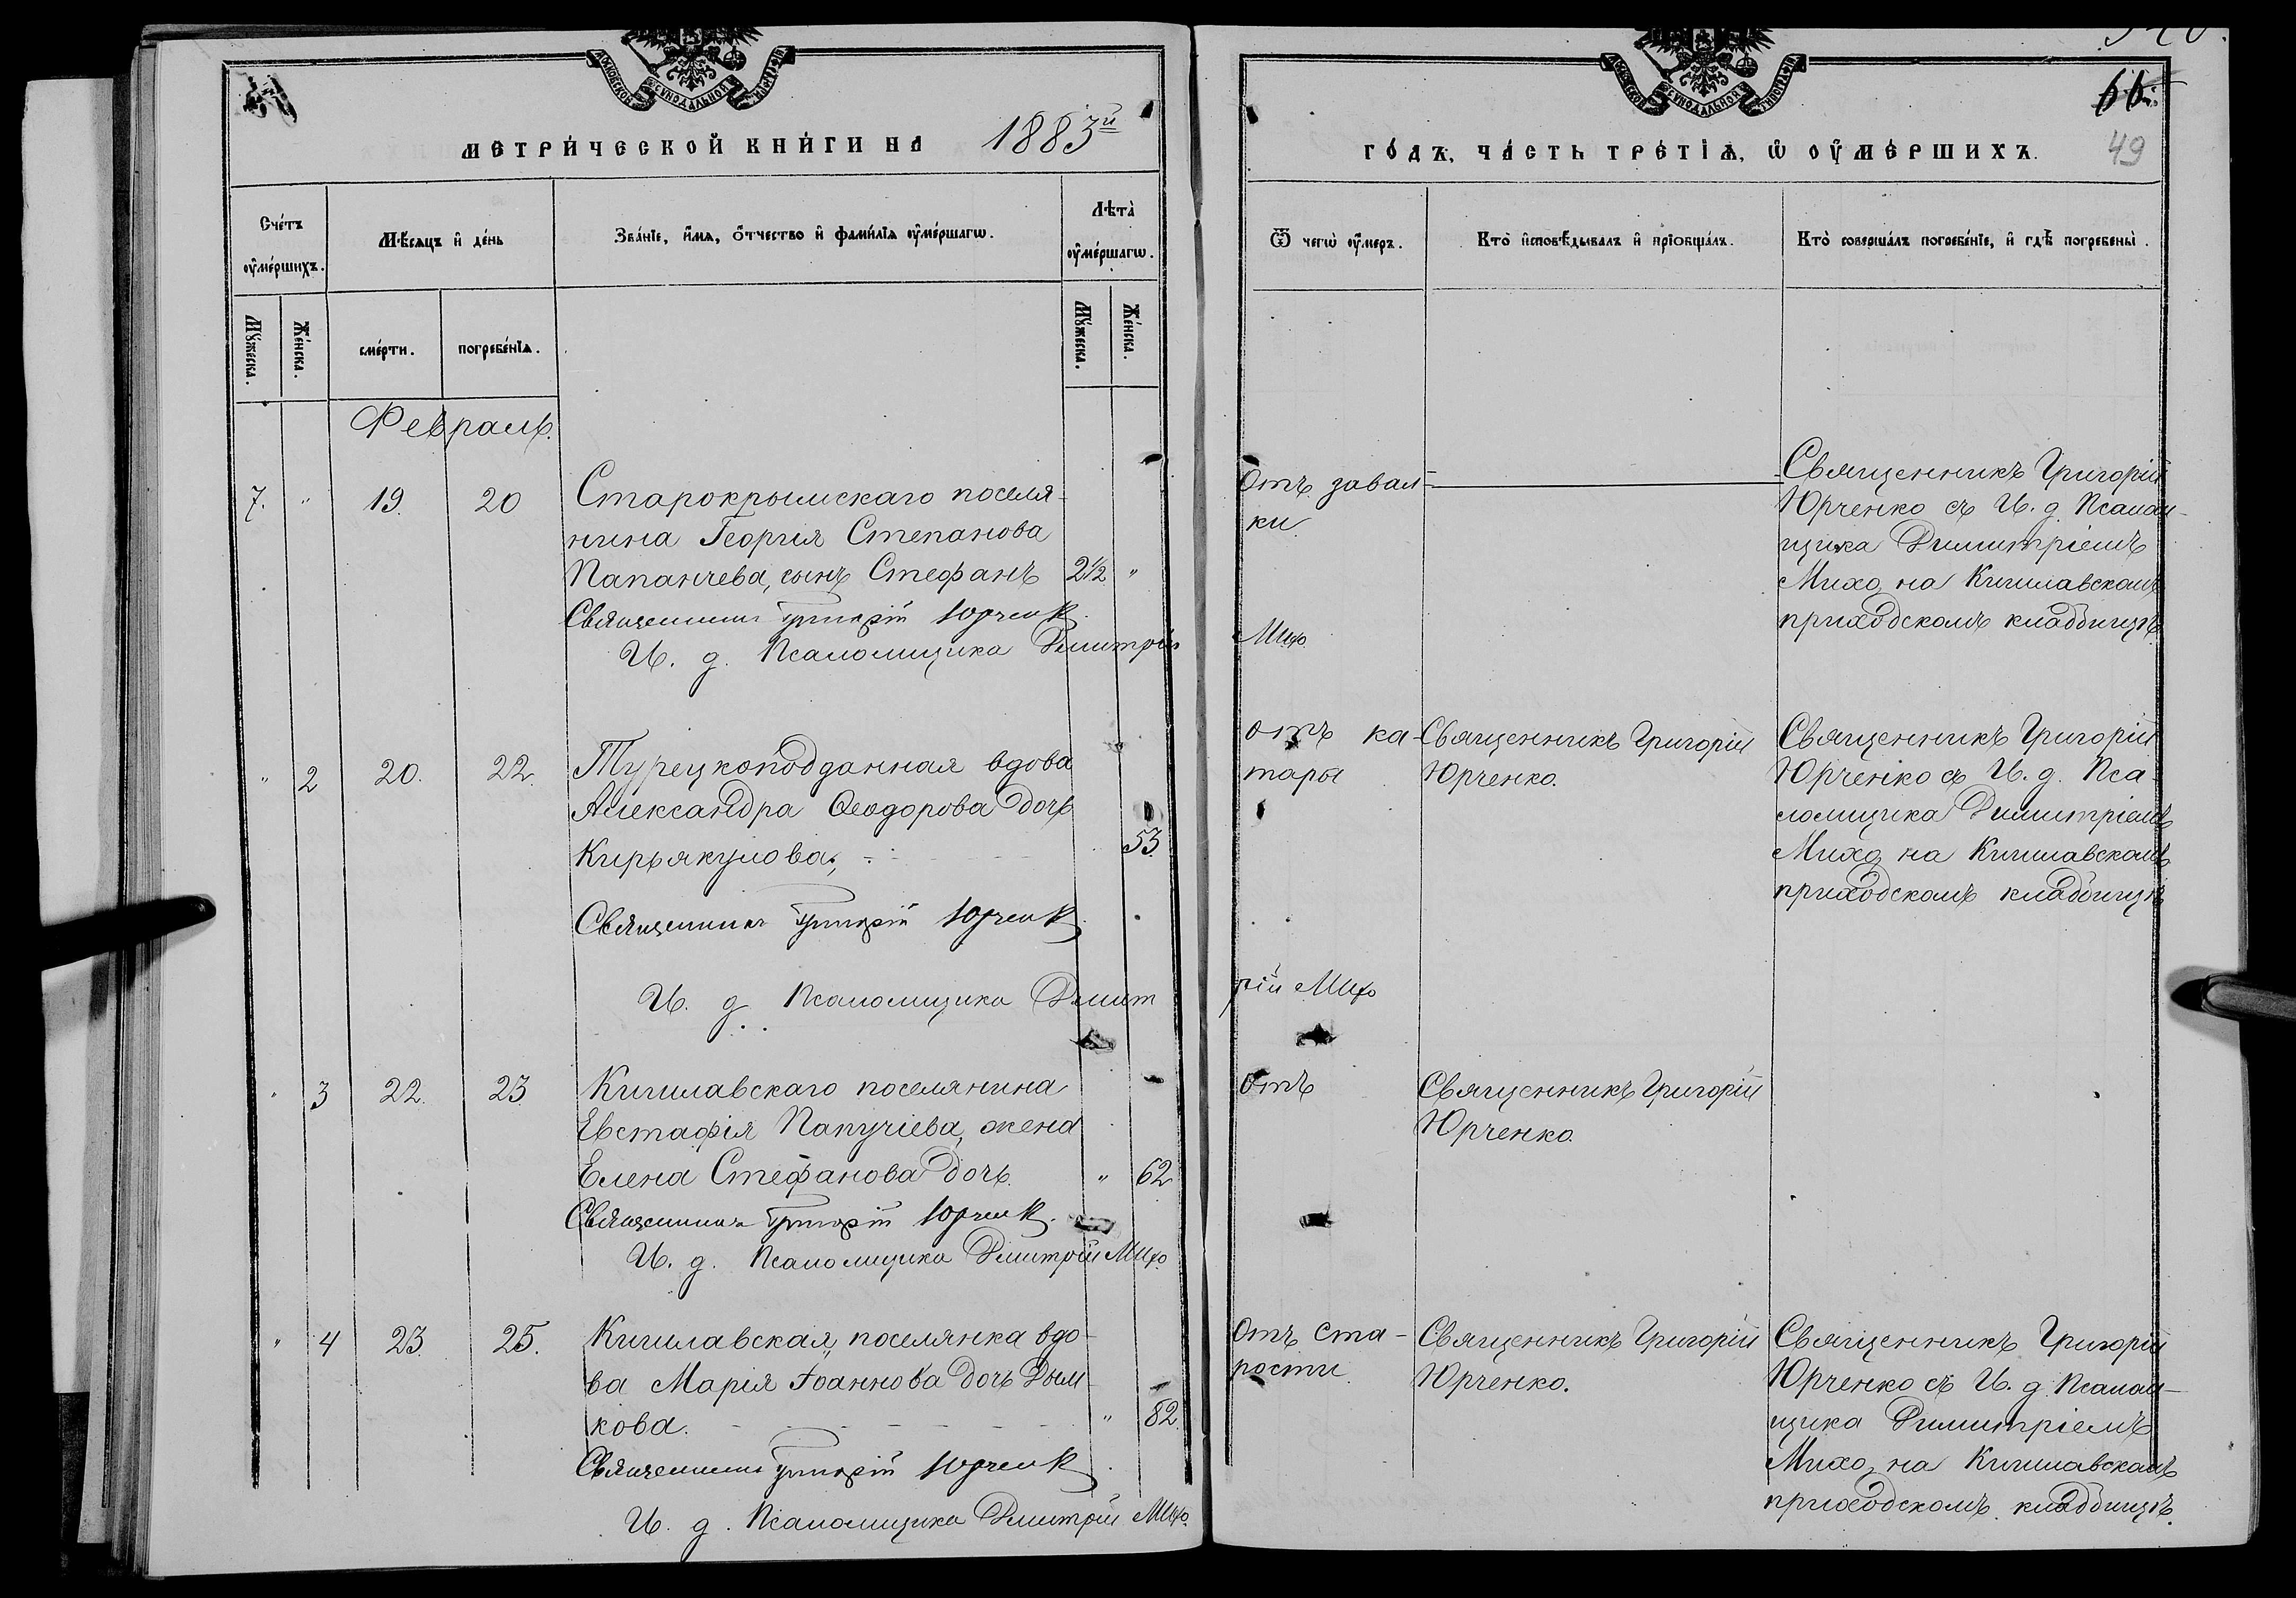 МЕТРИЧЕСКОЙ КНИГИ НА 1883й
Счетъ умершихъ.
Мѣсяцъ и день
Званіе, имя, отчество и фамилія умершагѡ.
Лѣта умершагѡ.
Мужеска.
Женска.
смерти.
погребенія.
Мужеска.
Женска.
Февраль.
7. " 19. 20 Старокрымскаго поселя-
нина Георгія Степанова
Папанчева, сынъ Стефанъ 2½ "
Священникъ Григорій Юрченко
И. д. Псаломщика Димитрій
" 2 20. 22 Турецкоподданная вдова
Александра Ѳеодорова дочь
Кирьякулова, 53
Священникъ Григорій Юрченко
И. д. Псаломщика Димит
" 3 22. 23 Кишлавскаго поселянина
Евстафія Папучіева, жена
Елена Стефанова дочь. " 62
Священникъ Григорій Юрченко.
И. д. Псаломщика Димитрій Михо
" 4 23. 25. Кишлавская поселянка вдо-
ва Марія Іоаннова дочь Дым-
кова. " 82.
Священникъ Григорій Юрченко
И. д. Псаломщика Димитрій Михо.
66
49
ГОДЪ, ЧАСТЬ ТРЕТІЯ, Ѡ УМЕРШИХЪ.
Ѿ чегѡ умеръ.
Кто исповѣдывалъ и пріобщалъ.
Кто совершалъ погребеніе, и гдѣ погребены.
Отъ завал-
ки.
Михо
Священникъ Григорій
Юрченко съ И. д. Псалом-
щика Димитріемъ
Михо, на Кишлавскомъ
приходскомъ кладбищѣ
отъ ка-
тары
Священникъ Григорій
Юрченко.
Священникъ Григорій
Юрченко съ И. д. Пса-
ломщика Димитріемъ
Михо, на Кишлавскомъ
приходскомъ кладбищѣ
рій Михо
Отъ
Священникъ Григорій
Юрченко.
Отъ ста-
рости.
Священникъ Григорій
Юрченко.
Священникъ Григорій
Юрченко съ И. д. Псалом-
щика Димитріемъ
Михо, на Кишлавскомъ
приходскомъ кладбищѣ.